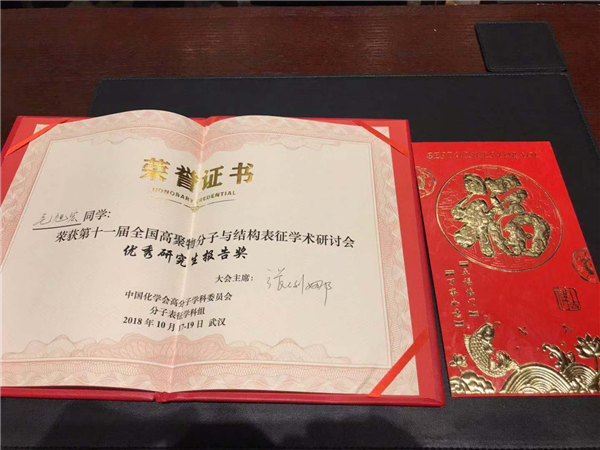 荣誉证书
HONORARY CREDENTIAL
同学:
荣获第十一届全国高聚物分子与结构表征学术研讨会
优秀研究生报告奖
大会主席:
中国化学会高分子学科委员会
分子表征学科组
2018 年 10 月 17-19 日 武汉
福